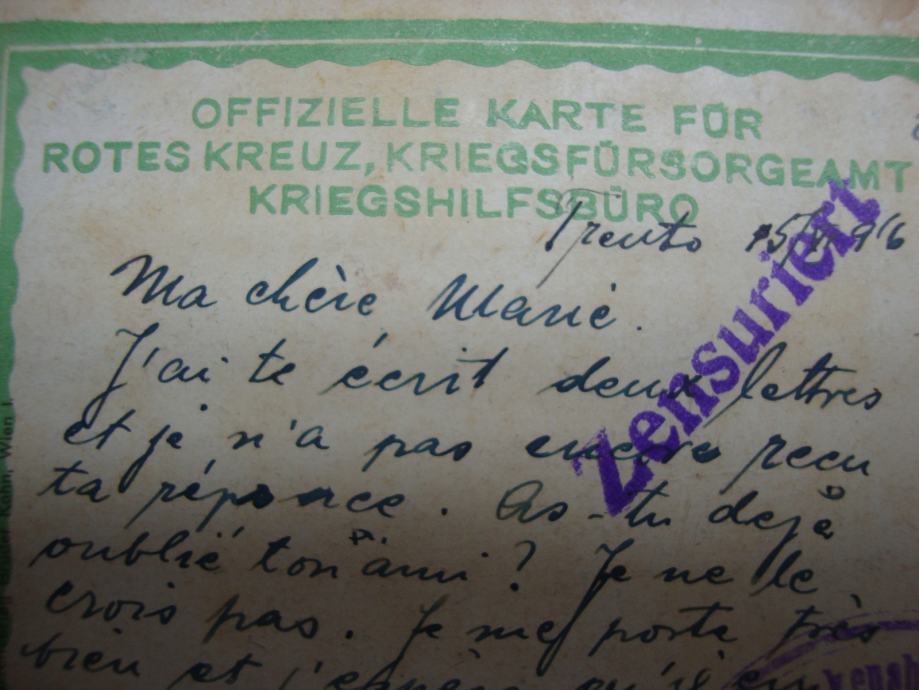 OFFIZIELLE KARTE FÜR
ROTES KREUZ, KRIEGSFÜRSORGEAMT
KRIEGSHILFSBÜRO
Trento
Zensuriert
Ma chère Marie.
J'ai te écrit deux lettres
et je n'a pas encore recu
ta réponce. As-tu dejà
oublié ton ami? Je ne le
crois pas. Je me porte très
bien et j'espère qu'il en
Kohn, Wien I.